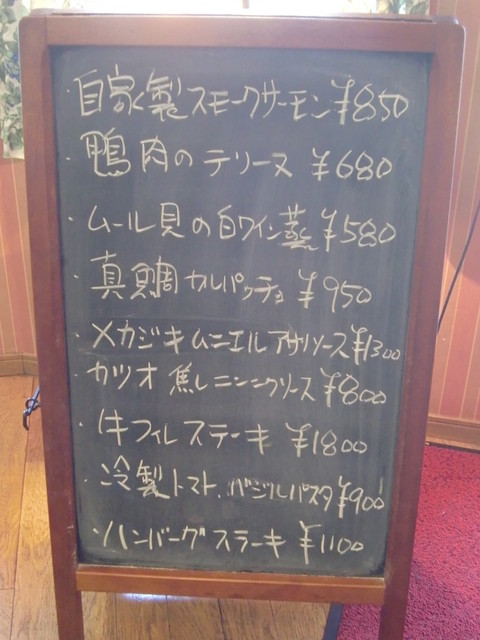 ・自家製スモークサーモン¥850
・鴨肉のテリーヌ ¥680
・ムール貝の白ワイン蒸し¥580
・真鯛カルパッチョ ¥950
・メカジキムニエルアサリソース¥1300
・カツオ 焦しニンニクソース¥800
・牛フィレステーキ ¥1800
・冷製トマト、バジルパスタ¥900
・ハンバーグステーキ ¥1100